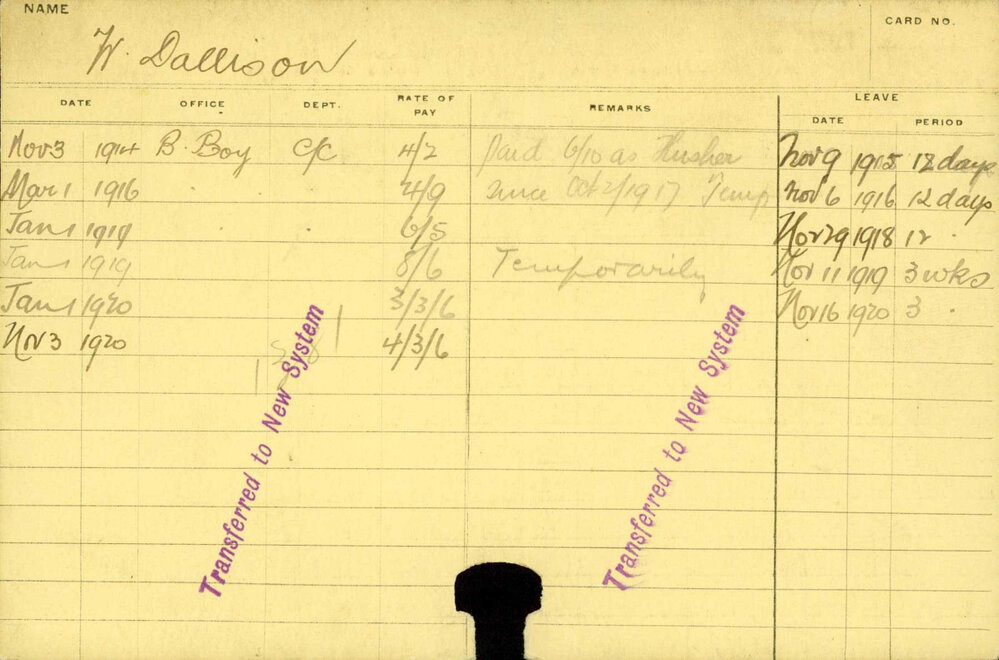 NAME
CARD NO.
W. Dallison
DATE OFFICE DEPT. RATE OF PAY REMARKS LEAVE
DATE PERIOD
Nov 3 1914 B. Boy C/C 4/2 Paid 6/10 as Nov 9 1915 12 days
Mar 1 1916 4/9 since Oct 2/1917 Temp Nov 6 1916 12 days
Jan 1 1919 6/5 Nov 29 1918 12 .
Jan 1 1919 8/6 Temporarily Nov 11 1919 3 wks
Jan 1 1920 3/3/6 Nov 16 1920 3 .
Nov 3 1920 4/3/6
Transferred to New System
Transferred to New System